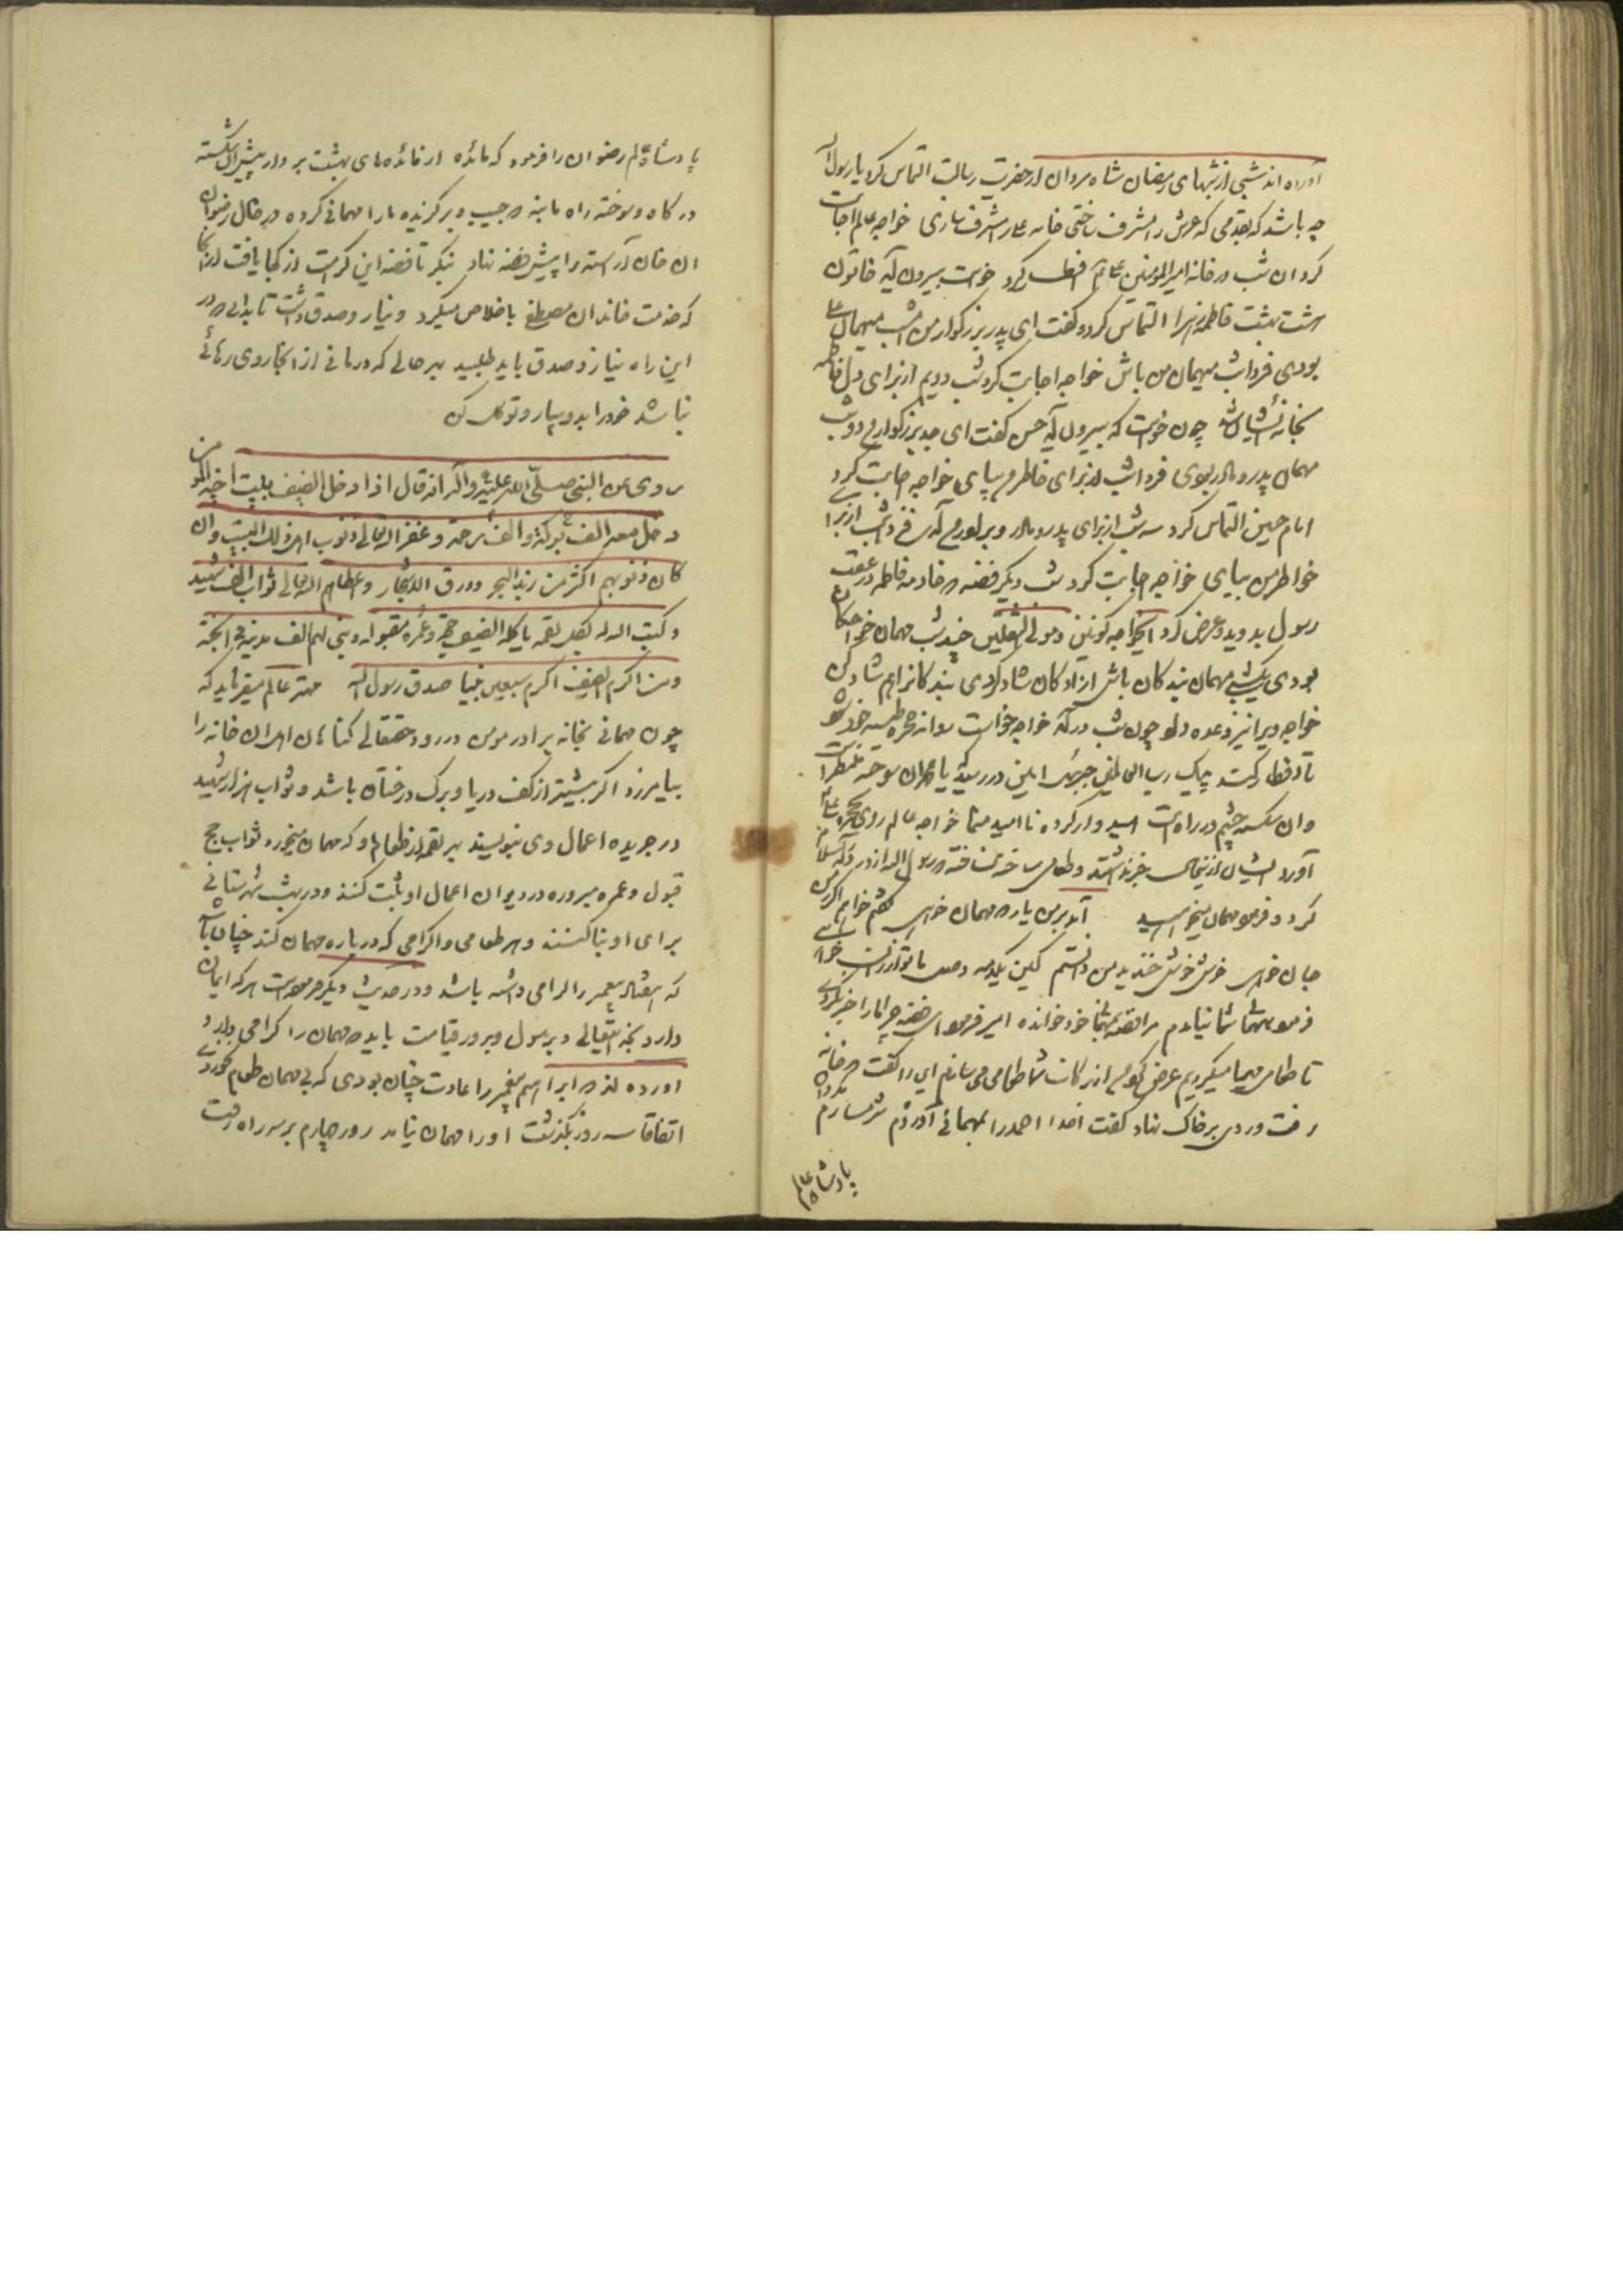 آورده اند شبی از شبهای رمضان شاه مردان از حضرت رسالت التماس کرد یا رسول الله
چه باشد که بقدمی که عرش را مشرف ساختی خانه علی را مشرف سازی خواجه عالم اجابت
کرد ان شب در خانه امیر المومنین علی افطار کرد خواست بیرون آید خاتون
هشت بهشت فاطمه زهرا التماس کرد و گفت ای پدر بزرگوار من امشب میهمان علی
بودی فردا شب میهمان من باش خواجه اجابت کرد شب دویم از برای دل فاطمه
بخانه ایشان شد چون خواست که بیرون آید حسن گفت ای جد بزرگوارم دو شب
مهمان پدر و مادر بودی فردا شب از برای خاطرم بیای خواجه اجابت کرد
امام حسین التماس کرد سه شب از برای پدر و مادر و برادرم آمدی فردا شب از برای
خواطر من بیای خواجه اجابت کرد شب دیگر فضه خادمه فاطمه در عقب
رسول بدوید و عرض کرد ای خواجه کونین و مولی الثقلین چند شب مهمان خواجگان
بودی یک شب مهمان بندگان باش ازادگان شاد کردی بندگانرا هم شاد کن
خواجه ویرا نیز وعده داد چون شب درآمد خواجه خواست روانه حجره طیبه خود شود
تا افطار کند پیک رب العالمین جبرئیل امین در رسید که یا محمد ان سوخته منتظر است
وان شکسته چشم در راه است امیدوار کرده نا امید منما خواجه عالم روی بحجره علی
آورد ایشان از اینحال خبر نداشتند و طعامی ساخته نساخته رسول الله از در درآمد سلام
کرد و فرمود مهمان میخواهید آمد بر من یار که مهمان خواهی گفتم خواهم اگر من
جان خواهی خوش خوش خندید من دانستم
فرمود مهمان شما نیامدم مرا فضه بمهمانی خود خوانده امیر فرمود ای فضه چرا ما را خبر نکردی
تا طعامی مهیا میکردیم عرض کرد از برکات شما طعامی می سازم این را گفت و در خانه
رفت و روی بر خاک نهاد گفت خدا احمد را بمهمانی آوردم شرمسارم مگردان
پادشاه عالم
پادشاه عالم رضوان را فرمود که مائده از مائده های بهشت بردار پیش آن شکسته
درگاه و سوخته راه ما بنه حبیب و برگزیده ما را مهمانی کرده در حال رضوان
ان خان آراسته را پیش فضه نهاد بنگر تا فضه این کرامت از کجا یافت از آنجا
که خدمت خاندان مصطفی باخلاص میکرد و نیاز و صدق داشت تا بدانی در
این راه نیاز و صدق باید طلبید بهر حالی که درمانی از آنجا روی رهائی
نباشد خود را بدو بسپار و توکل کن
روی عن النبی صلی الله علیه و آله انه قال اذا دخل الضیف ببیت اخیه المومن
دخل معه الف برکة و الف رحمة و غفر الله تعالی ذنوب اهل ذلک البیت و ان
کان ذنوبهم اکثر من زبد البحر و ورق الاشجار و اعطاهم الله تعالی ثواب الف شهید
و کتب الله له بکل لقمة یاکله الضیف حجة و عمرة مقبولة و بنی لهم الف مدینة فی الجنة
ومن اکرم الضیف اکرم سبعین نبیا صدق رسول الله مهتر عالم میفرماید که
چون مهمانی بخانه برادر مومن در رود حقتعالی گناهان اهل ان خانه را
بیامرزد اگر بیشتر از کف دریا و برگ درختان باشد و ثواب هزار شهید
در جریده اعمال وی بنویسند بهر لقمه از طعام او که مهمان میخورد ثواب حج
قبول و عمره مبروره در دیوان اعمال او ثبت کنند و در بهشت شهرستانی
برای او بنا کنند و هر طعامی و اکرامی که درباره مهمان کند چنان باشد
که هفتاد پیغمبر را گرامی داشته باشد و در حدیث دیگر فرموده است هر که ایمان
دارد بخدایتعالی و برسول و بروز قیامت باید مهمان را گرامی دارد
اورده اند ابراهیم پیغمبر را عادت چنان بودی که بی مهمان طعام نخوردی
اتفاقا سه روز بگذشت او را مهمان نیامد روز چهارم بر سر راه رفت